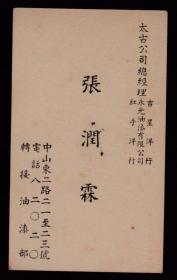 太古公司總經理
吉星洋行
永光油漆有限公司
紅手洋行
張潤霖
中山東二路二一至二三號
電話八二〇二〇
轉接油漆部